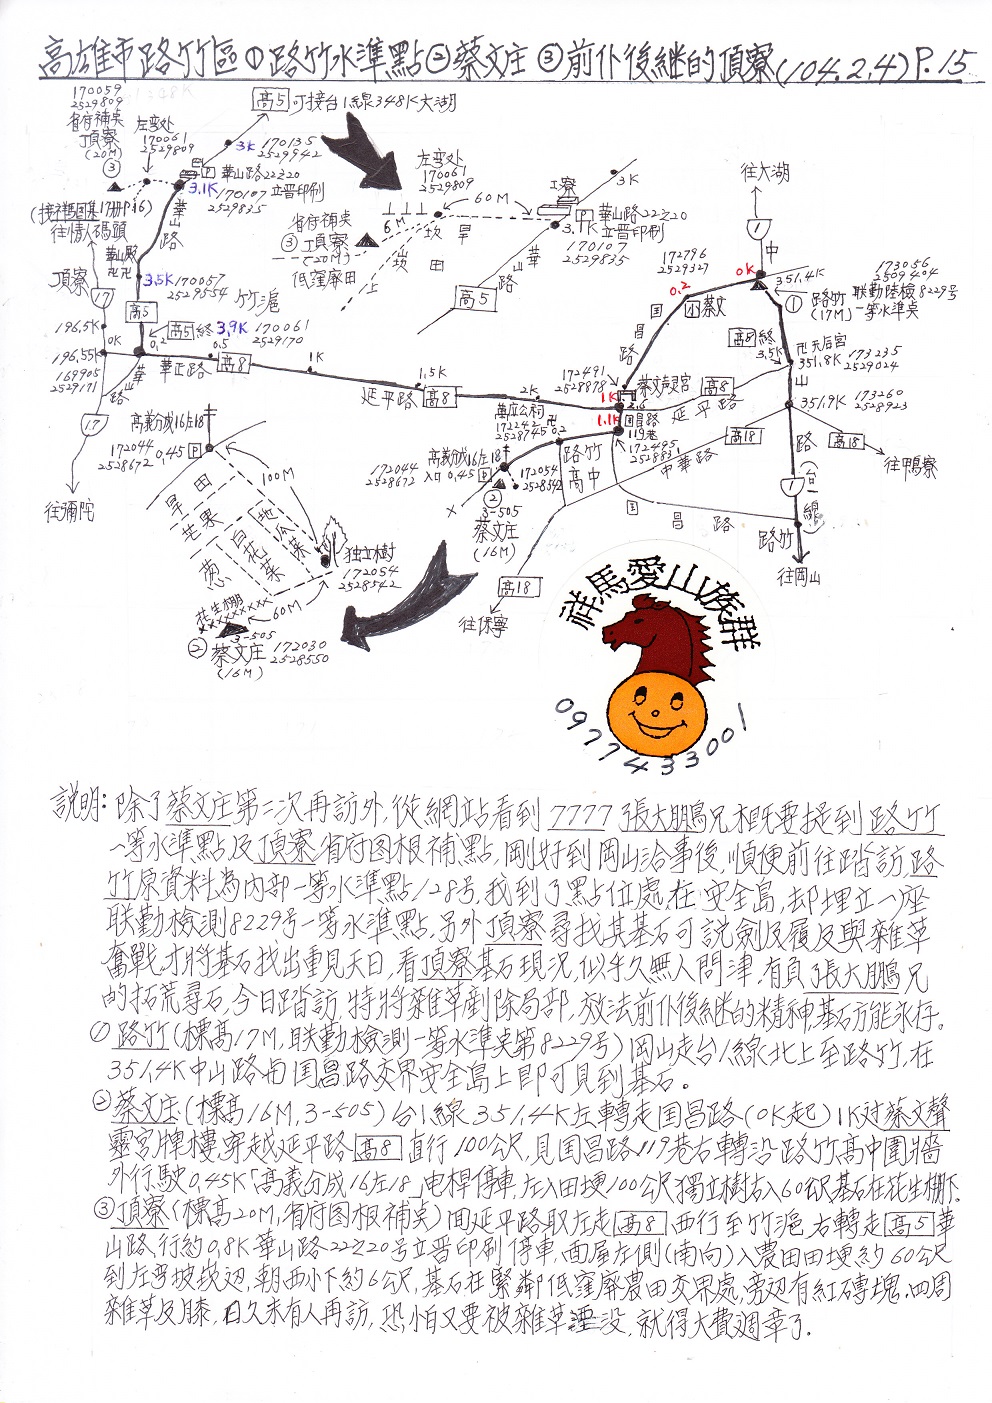 高雄市路竹區①路竹水準點②蔡文庄③前仆後継的頂寮(104.2.4)P.15
170059
2529809
省府補点
頂寮
(20M)
③
左彎处
170061
2529809
高5 可接台1線348K大湖
3K 170135
2529942
華山路22之20
3.1K 立晋印刷
170107
2529835
(接祥馬图集17册P.16)
往情人碼頭
華山路
華山殿
3.5K 170057
2529554
頂寮
17
高5
竹滬
高5 終 3.9K 170061
2529170
196.5K
0K
0.2
0.5
196.55K
169905
2529171
華正路
高8
1K
1.5K
延平路
高8
2K
17
往彌陀
左彎处
170061
2529809
60M
工寮
3K
P 華山路22之20
立晋印刷
3.1K
170107
2529835
省府補点
③頂寮
(20M)
低窪廢田
6M
坎
旱田
崁
上
華山路
高5
往大湖
1
中
0K
351.4K
173056
2509404
① 路竹
(17M)
联勤陸檢8229号
一等水準点
172796
2529327
0.2
蔡文
国昌路
高8 終
3.5K
天后宮
351.8K 173235
2529024
山
172491
2528978
蔡文声灵宮
1K
2.6
延平路
高8
351.9K 173260
2528923
高18
往鴨寮
1.1K
国昌路
119巷
172495
2528831
中華路
高18
萬应公祠
172242
2528745 0.2
路竹高中
高義分成16左18
172044
2528672 入口 0.45 P
172054
2528542
②
3-505
蔡文庄
(16M)
国昌路
路(台1線)
路竹
往岡山
高18
往保寧
高義分成16左18
172044 0.45 P
2528672
100M
旱田
芒果
葱
白花菜
地瓜葉
独立樹
172054
2528542
花生棚
×××××××××
60M
3-505
② 蔡文庄 172030
(16M) 2528550
祥馬愛山族群
0977433001
說明:除了蔡文庄第二次再訪外,從網站看到7777張大鵬兄相既要提到路竹
一等水準點及頂寮省府图根補點,剛好到岡山洽事後,順便前往踏訪,路
竹原資料為內部一等水準點128号,我到了點位處,在安全島,却埋立一座
联勤檢測8229号一等水準點,另外頂寮尋找其基石可說劍及履及與雜草
奮戰,才將基石找出重見天日,看頂寮基石現況,似乎久無人問津,有負張大鵬兄
的拓荒尋石,今日踏訪,特將雜草剷除局部,放法前仆後継的精神,基石方能永存。
①路竹(標高17M,联勤檢測一等水準点第8229号)岡山走台1線北上至路竹,在
351.4K中山路与国昌路交界安全島上即可見到基石。
②蔡文庄(標高16M,3-505)台1線351.4K左轉走国昌路(0K起)1K对蔡文聲
靈宮牌樓,穿越延平路高8直行100公尺,見国昌路119巷右轉沿路竹高中圍牆
外行駛0.45K「高義分成16左18」电桿停車,左入田埂100公尺獨立樹右入60公尺基石在花生棚下.
③頂寮(標高20M,省府图根補点)回延平路取左走高8西行至竹滬,右轉走高5華
山路,行約0.8K華山路22之20号立晋印刷停車,面屋左側(南向)入農田田埂約60公尺
到左弯坡崁边,朝西小下約6公尺,基石在緊鄰低窪廢農田交界處,旁边有紅磚塊,四周
雜草及膝,日久未有人再訪,恐怕又要被雜草湮没,就得大費週章了.